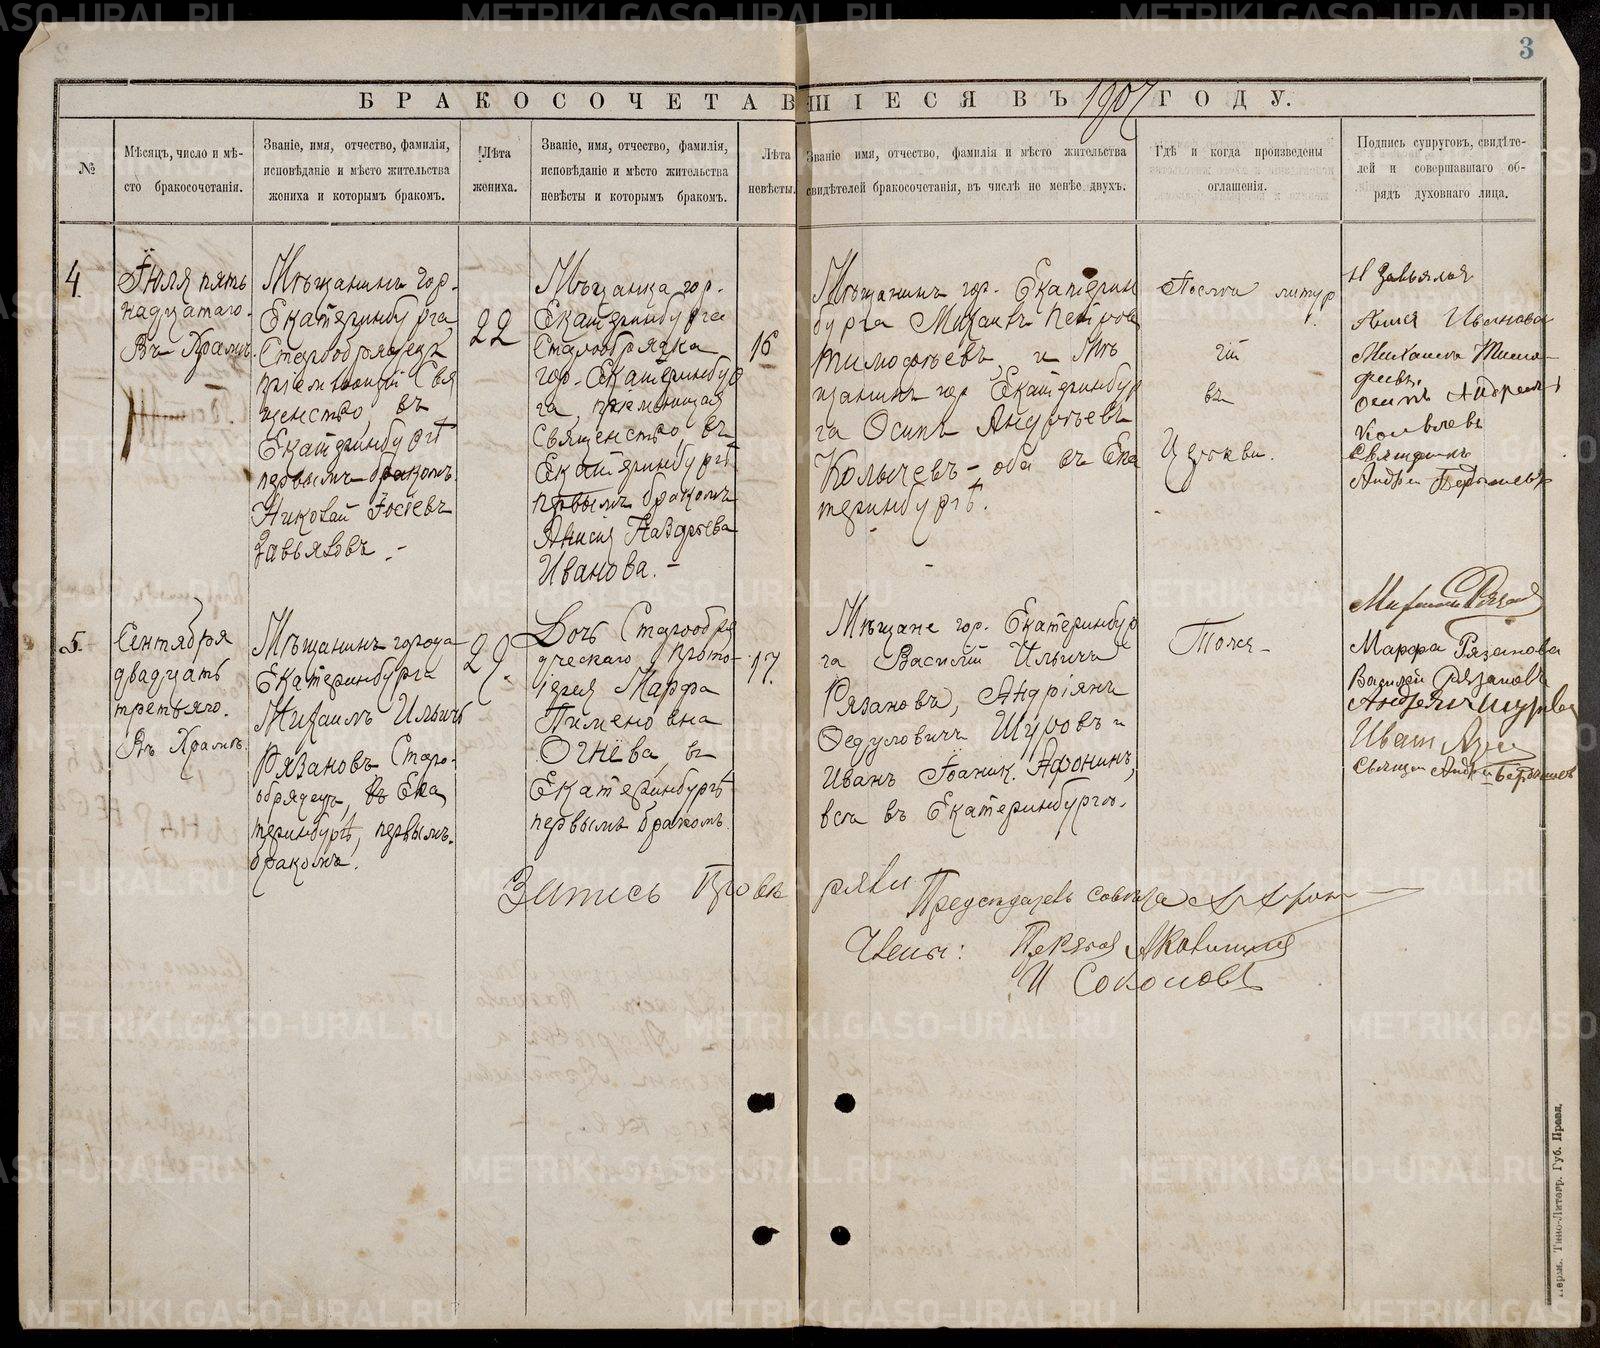 3
БРАКОСОЧЕТАВШІЕСЯ ВЪ 1907 ГОДУ.
№
Мѣсяцъ, число и мѣ-
сто бракосочетанія.
Званіе, имя, отчество, фамилія,
исповѣданіе и мѣсто жительства
жениха и которымъ бракомъ.
Лѣта
жениха.
Званіе, имя, отчество, фамилія,
исповѣданіе и мѣсто жительства
невѣсты и которымъ бракомъ.
Лѣта
невѣсты.
Званіе имя, отчество, фамилія и мѣсто жительства
свидѣтелей бракосочетанія, въ числѣ не менѣе двухъ.
Гдѣ и когда произведены
оглашенія.
Подпись супруговъ, свидѣте-
лей и совершавшаго об-
рядъ духовнаго лица.
4.
Іюля пять
надцатаго.
Въ Храмѣ.
Мѣщанинъ гор.
Екатеринбурга,
Старообрядецъ
пріемлющій Свя
щенство, въ
Екатеринбургѣ
первымъ бракомъ
Николай Гостевъ
Завьяловъ. –
22
Мѣщанка гор.
Екатеринбурга
Старообрядка
гор. Екатеринбур
га, пріемлющая
Священство, въ
Екатеринбургѣ
первымъ бракомъ
Анисія Назарьева
Иванова. –
16
Мѣщанинъ гор. Екатерин
бурга Михаилъ Петров
Тимофѣевъ, и Мѣ
щанинъ гор. Екатеринбур
га Осипъ Андреевъ
Колычевъ – оба въ Ека
теринбургѣ.
Послѣ литур
гій
въ
Церкви.
Н Завьялов
Анися Иванова
Михаилъ Тимо-
феевъ.
Осипъ Андреевъ
Священикъ
5.
Сентября
двадцать
третьяго.
Въ Храмѣ.
Мѣщанинъ города
Екатеринбурга
Михаилъ Ильичъ
Рязановъ Старо-
обрядецъ, въ Ека
теринбургѣ, первымъ
бракомъ.
29.
Дочь Старообря
дческаго прото-
іерея Марфа
Пименовна
Огнёва, въ
Екатеринбургѣ
первымъ бракомъ.
17.
Мѣщане гор. Екатеринбур
га Василій Ильичъ
Рязановъ, Андріянъ
Федуловичъ Шуровъ и
Иванъ Іоаник. Афонинъ,
вса въ Екатеринбургѣ.
Тоже –
Марфа Рязанова
Василій Рязановъ
Андреян Шуровъ
Иван
Запись провѣ ряли
Предсѣдатель совѣта
Члены:
И Соколовъ
Пермь. Типо-Литогр. Губ. Правл.
METRIKI.GASO-URAL.RU